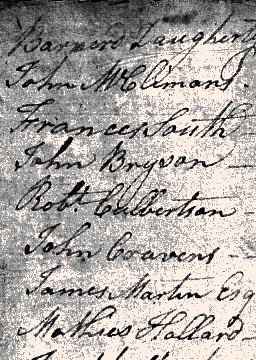 Barnerd Daugherty
John McClimans.
Frances South
John Bryson
Robt. Culbertson
John Cravens
James Martin Esq
Mathias Hollard